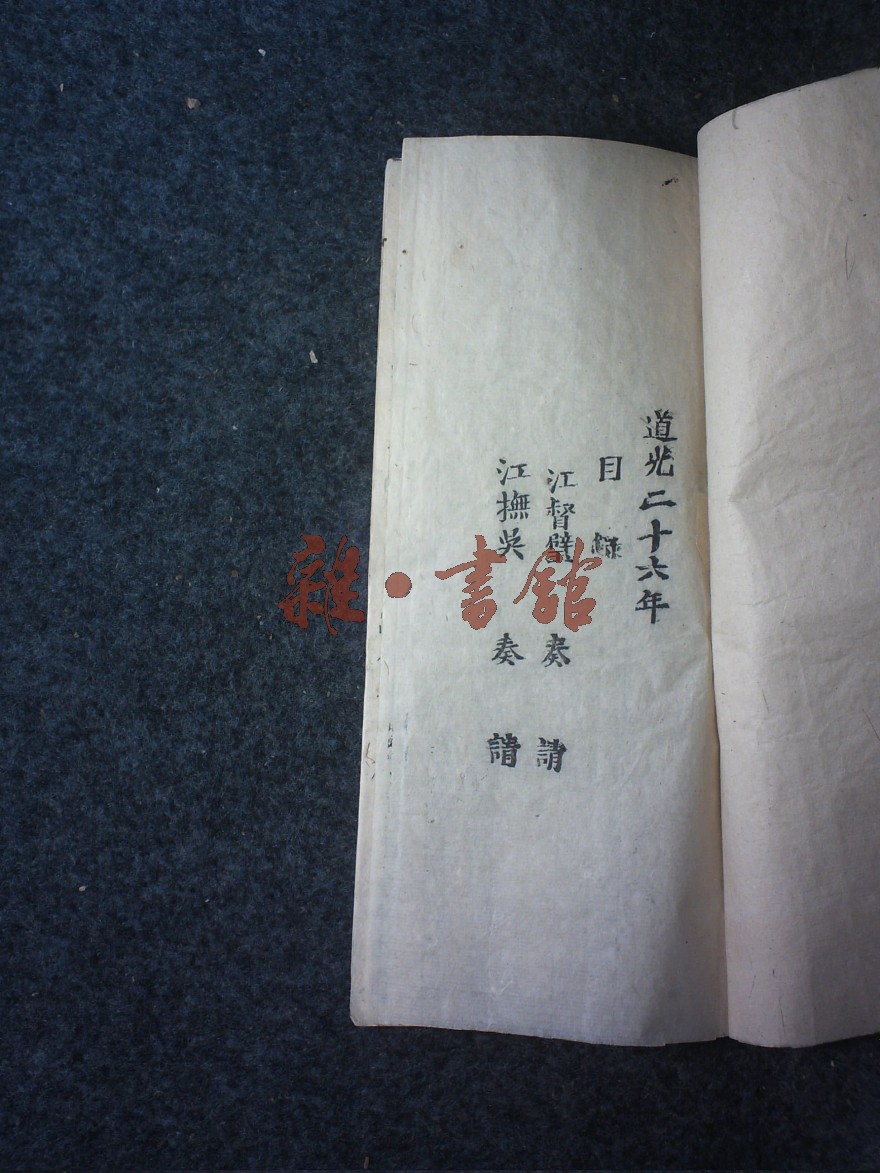 道光二十六年
目錄
江督璧 奏 請
江撫吳 奏 請
雜·書館